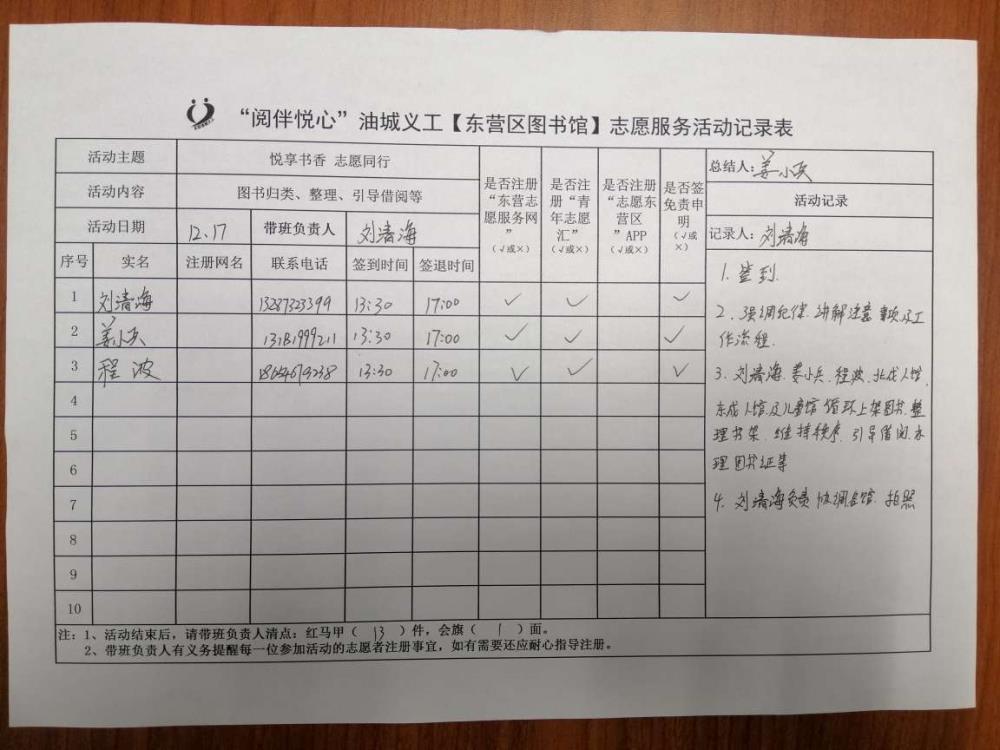 “阅伴悦心”油城义工【东营区图书馆】志愿服务活动记录表
活动主题 悦享书香 志愿同行 是否注册“东营志愿服务网”（√或×） 是否注册“青年志愿汇”（√或×） 是否注册“志愿东营区”APP（√或×） 是否签免责申明（√或×） 总结人：姜小兵
活动内容 图书归类、整理、引导借阅等 活动记录
活动日期 12.17 带班负责人 刘清海 记录人：刘清海
序号 实名 注册网名 联系电话 签到时间 签退时间
1 刘清海 13287323399 13:30 17:00 ✓ ✓ ✓
2 姜小兵 13:30 17:00 ✓ ✓ ✓
3 程波 13:30 17:00 ✓ ✓ ✓
4
5
6
7
8
9
10
1. 签到.
2. 强调纪律.讲解注意事项及工
作流程.
3. 刘清海.姜小兵.程波.北成人馆.
东成人馆及儿童馆循环上架图书.整
理书架.维持秩序.引导借阅.办
理图书证等
4. 刘清海负责协调各馆.拍照
注：1、活动结束后，请带班负责人清点：红马甲（ 13 ）件，会旗（ 1 ）面。
2、带班负责人有义务提醒每一位参加活动的志愿者注册事宜，如有需要还应耐心指导注册。